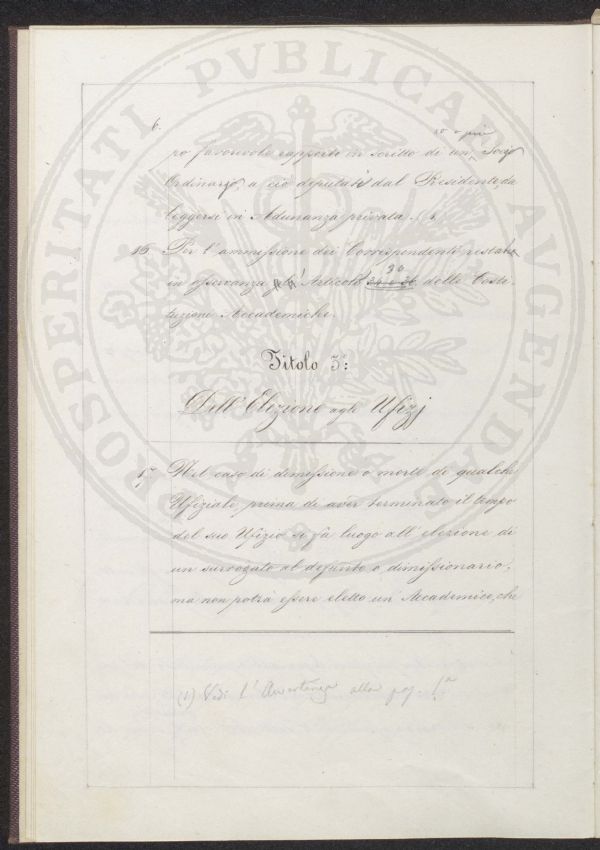 6.
o più
po favorevole rapporto in scritto di un Socio
Ordinario, a ciò deputati dal Residente, da
leggersi in Adunanza privata.
16. Per l'ammissione dei Corrispondenti restare
30
in osservanza Articoli 34 e 36 delle Costi-
tuzioni Accademiche.
Titolo 3°:
Dell'Elezione agli Ufizj
1.° Nel caso di dimissione o morte di qualche
Ufiziale, prima di aver terminato il tempo
del suo Ufizio si fà luogo all'elezione di
un surrogato al defunto o dimissionario,
ma non potrà essere eletto un'Accademico, che
(1) Vedi l'Avvertenza alla pag. 1.ª
PROSPERITATI PVBLICAE AVGENDAE